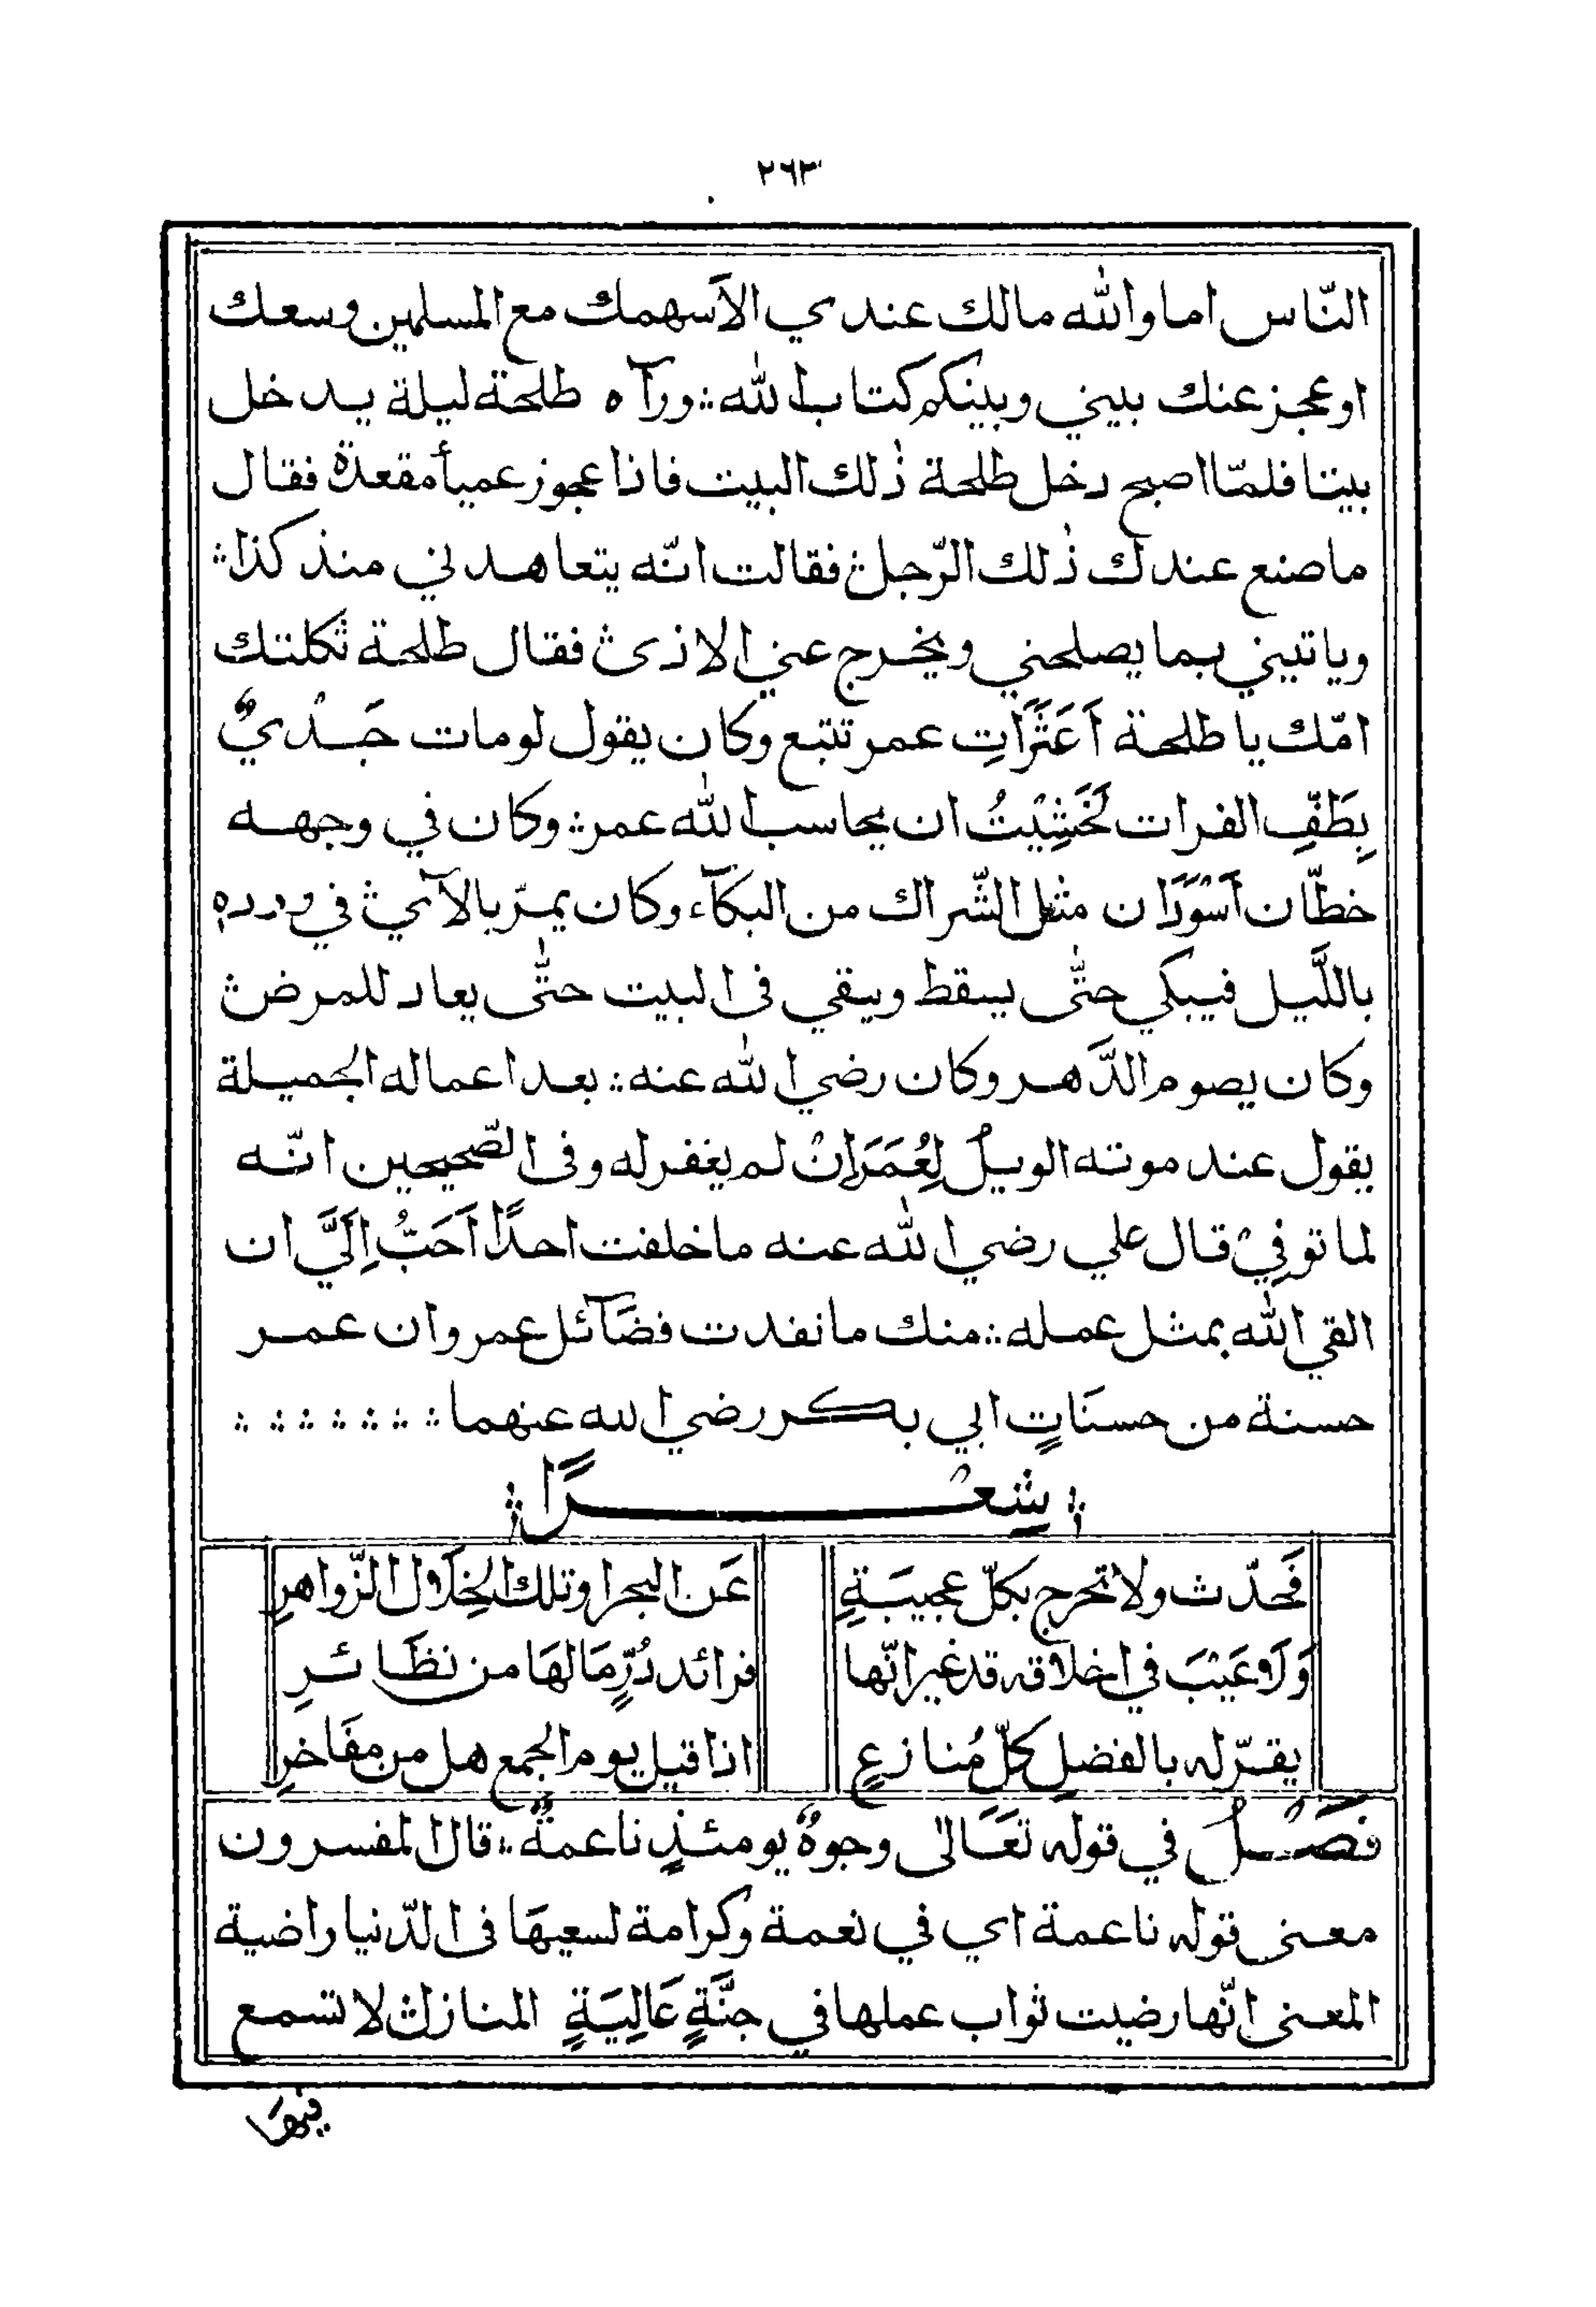 ٢٦٣
النّاس اما والله مالك عندي الاّسهمك مع المسلمين وسعك
او عجز عنك بيني وبينكم كتاب الله ؞ ورآه طلحة ليلة يدخل
بيتا فلمّا اصبح دخل طلحة ذٰلك البيت فاذا عجوز عميأ مقعدة فقال
ما صنع عندك ذٰلك الرّجل ؞ فقالت انّه يتعاهدني منذ كذا ؞
وياتيني بما يصلحني ويخرج عني الاذى ؞ فقال طلحة ثكلتك
امّك يا طلحة أَعَثَرَاتِ عمر تتبع وكان يقول لومات جَدْيٌ
بِطَفِّ الفرات لَخَشِيْتُ ان يحاسب الله عمر ؞ وكان في وجهه
خطّان اَسْوَدَان مثل الشّراك من البكآء وكان يمرّ بالآي ؞ في ورده
باللَّيل فيبكي حتّٰى يسقط ويبقي فى البيت حتّٰى يعاد للمرض ؞
وكان يصوم الدَّهر وكان رضي الله عنه ؞ بعد اعماله الجميلة
يقول عند موته الويلُ لِعُمَرَانْ لم يغفر له وفى الصّحيحين انّه
لما توفِيْ قال علي رضي الله عنه ما خلفت احدًا اَحَبُّ اِلَيَّ ان
القي الله بمثل عمله ؞ منك ما نفدت فضَآئل عمر وان عمر
حسنة من حسنَاتٍ ابي بكر رضي الله عنهما ؞ ؞ ؞ ؞ ؞ ؞ ؞
؞ شِعْرًا ؞
فَحَدّث ولا تحرج بكلّ عجيبَةٍ عَن البحرا وتلك الخِلَال الزّواهرِ
وَلَا عَيْبَ في اخلاقه قد غير انّها فرائد دُرٍّ مَا لهَا من نظَائرِ
يقرّ له بالفضلِ كلّ مُنازعٍ اذا قيل يوم الجمع هل من مفَاخرِ
فَصْلُ في قوله تعَالى وجوهٌ يومئذٍ ناعمةٌ ؞ قال المفسرون
معنى قوله ناعمة اي في نعمة وكرامة لسعيهَا فى الدّنيا راضية
المعنى انّها رضيت ثواب عملها في جنَّةٍ عَالِيَةٍ المنازل ؞ لا تسمع
فيهَا